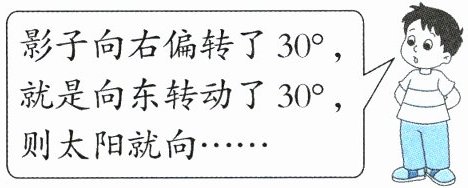 影子向右偏转了 30°，
就是向东转动了 30°，
则太阳就向……